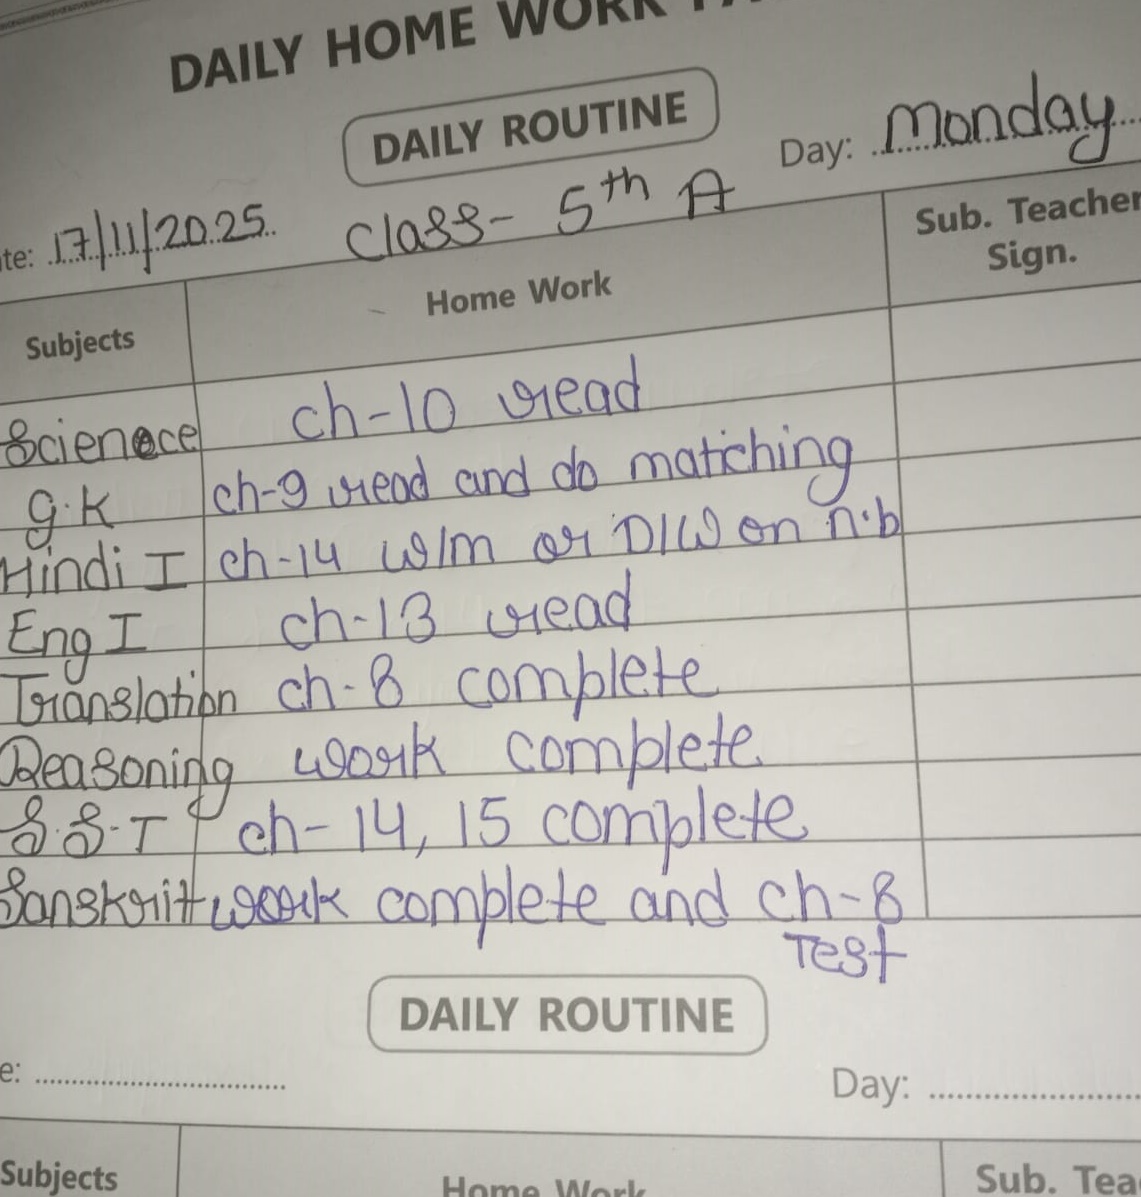 DAILY HOME WORK
DAILY ROUTINE
Day: Monday
te: 17/11/2025 Class- 5th A
Subjects Home Work Sub. Teacher
Sign.
Scienece ch-10 read
g.K ch-9 read and do matiching
Hindi I ch-14 W/m or D/W on n.b
Eng I ch-13 read
Translation ch-8 complete
Reasoning work complete
S.S.T ch-14, 15 complete
Sanskrit work complete and ch-8
Test
DAILY ROUTINE
e: Day:
Subjects Home Work Sub. Tea